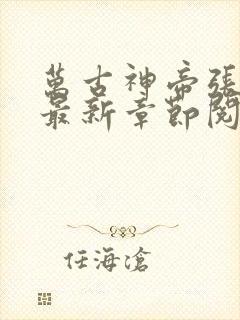 萬古神帝張
最新章節閱
任海滄